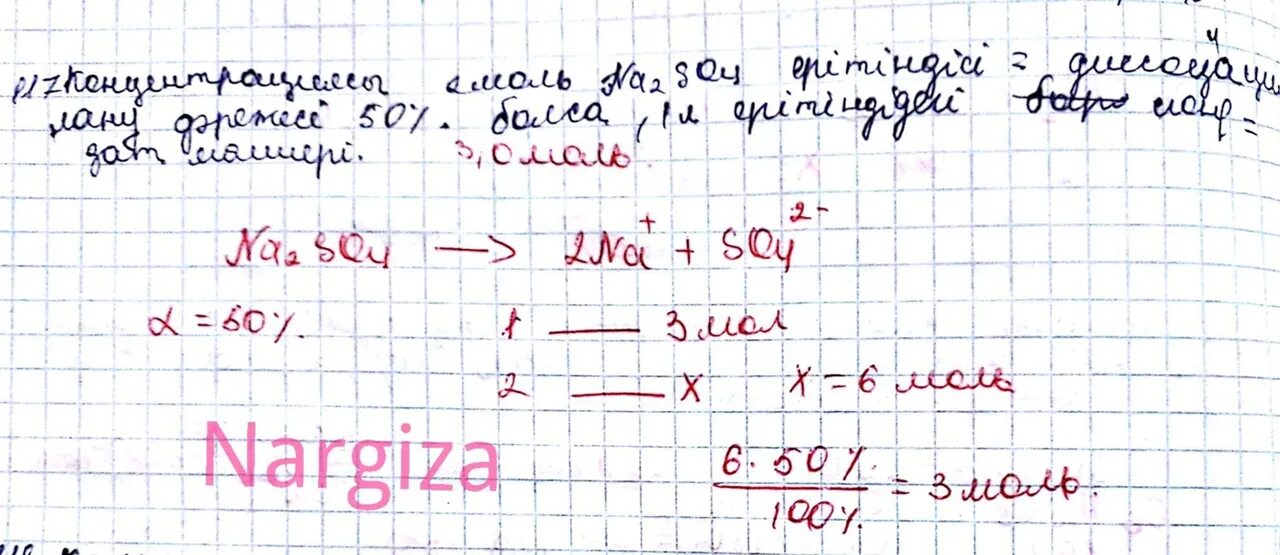 концентрациясы 2 моль Na₂SO₄ ерітіндісі = диссоцаци
лану дәрежесі 50%. болса, 1 л ерітіндідегі
зат мөлшері. 3,0 моль.
Na₂SO₄ → 2Na⁺ + SO₄²⁻
α = 50%. 1 — 3 мол
2 — x x = 6 моль
6 · 50%. / 100%. = 3 моль.
Nargiza